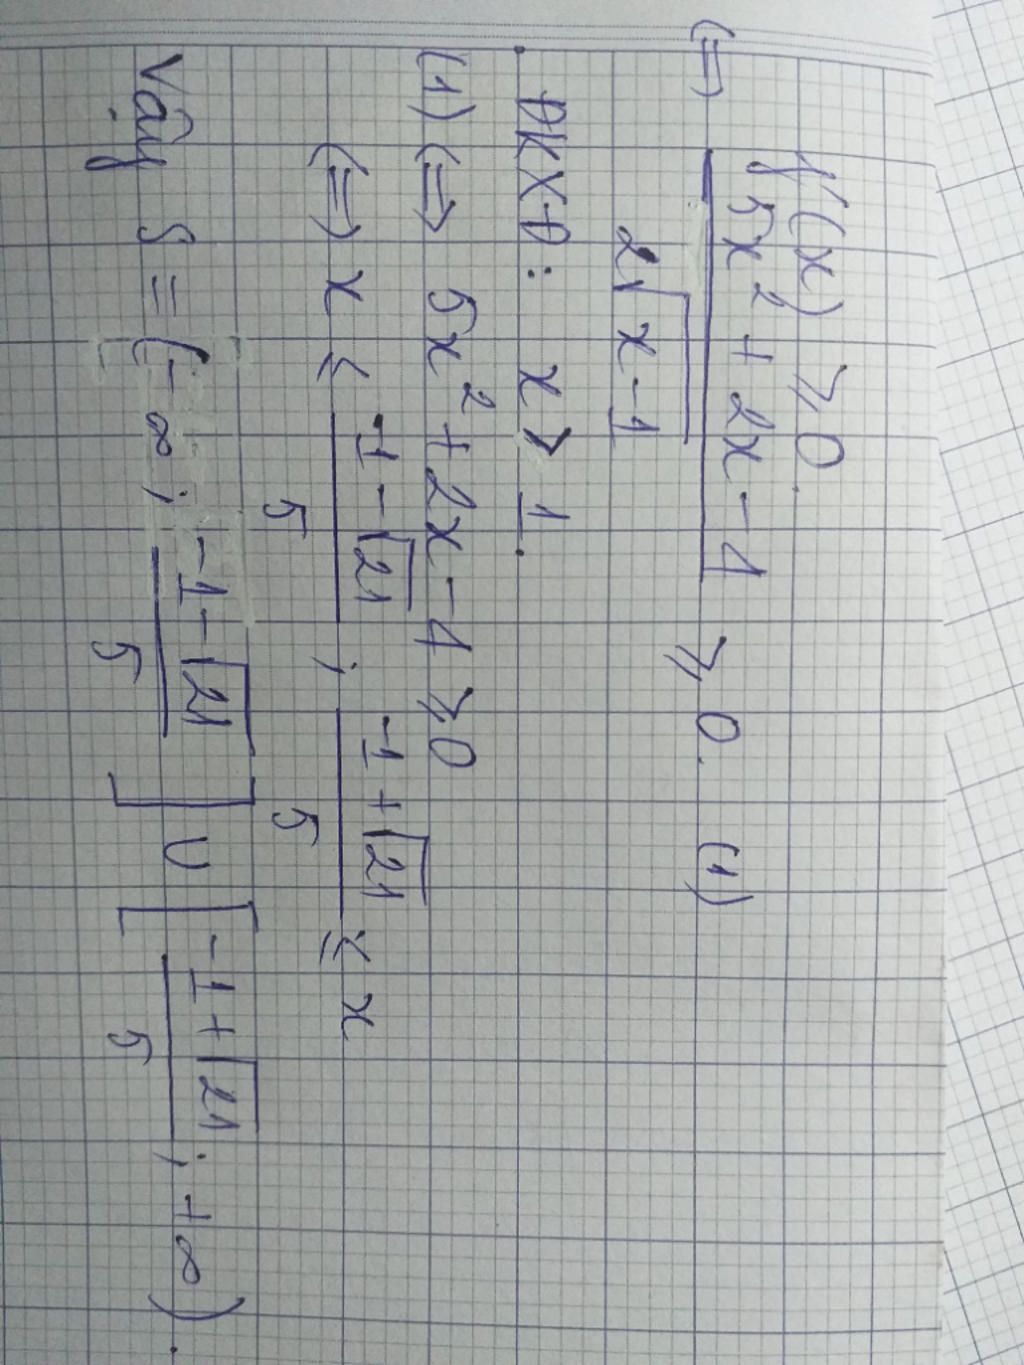 f'(x) ⩾ 0
⇔ (5x² + 2x - 4)/(2√(x-1)) ⩾ 0. (1)
ĐKXĐ: x > 1.
(1) ⇔ 5x² + 2x - 4 ⩾ 0
⇔ x ≤ (-1-√21)/5 ; (-1+√21)/5 ≤ x
Vậy S = (-∞; (-1-√21)/5] ∪ [(-1+√21)/5; +∞).